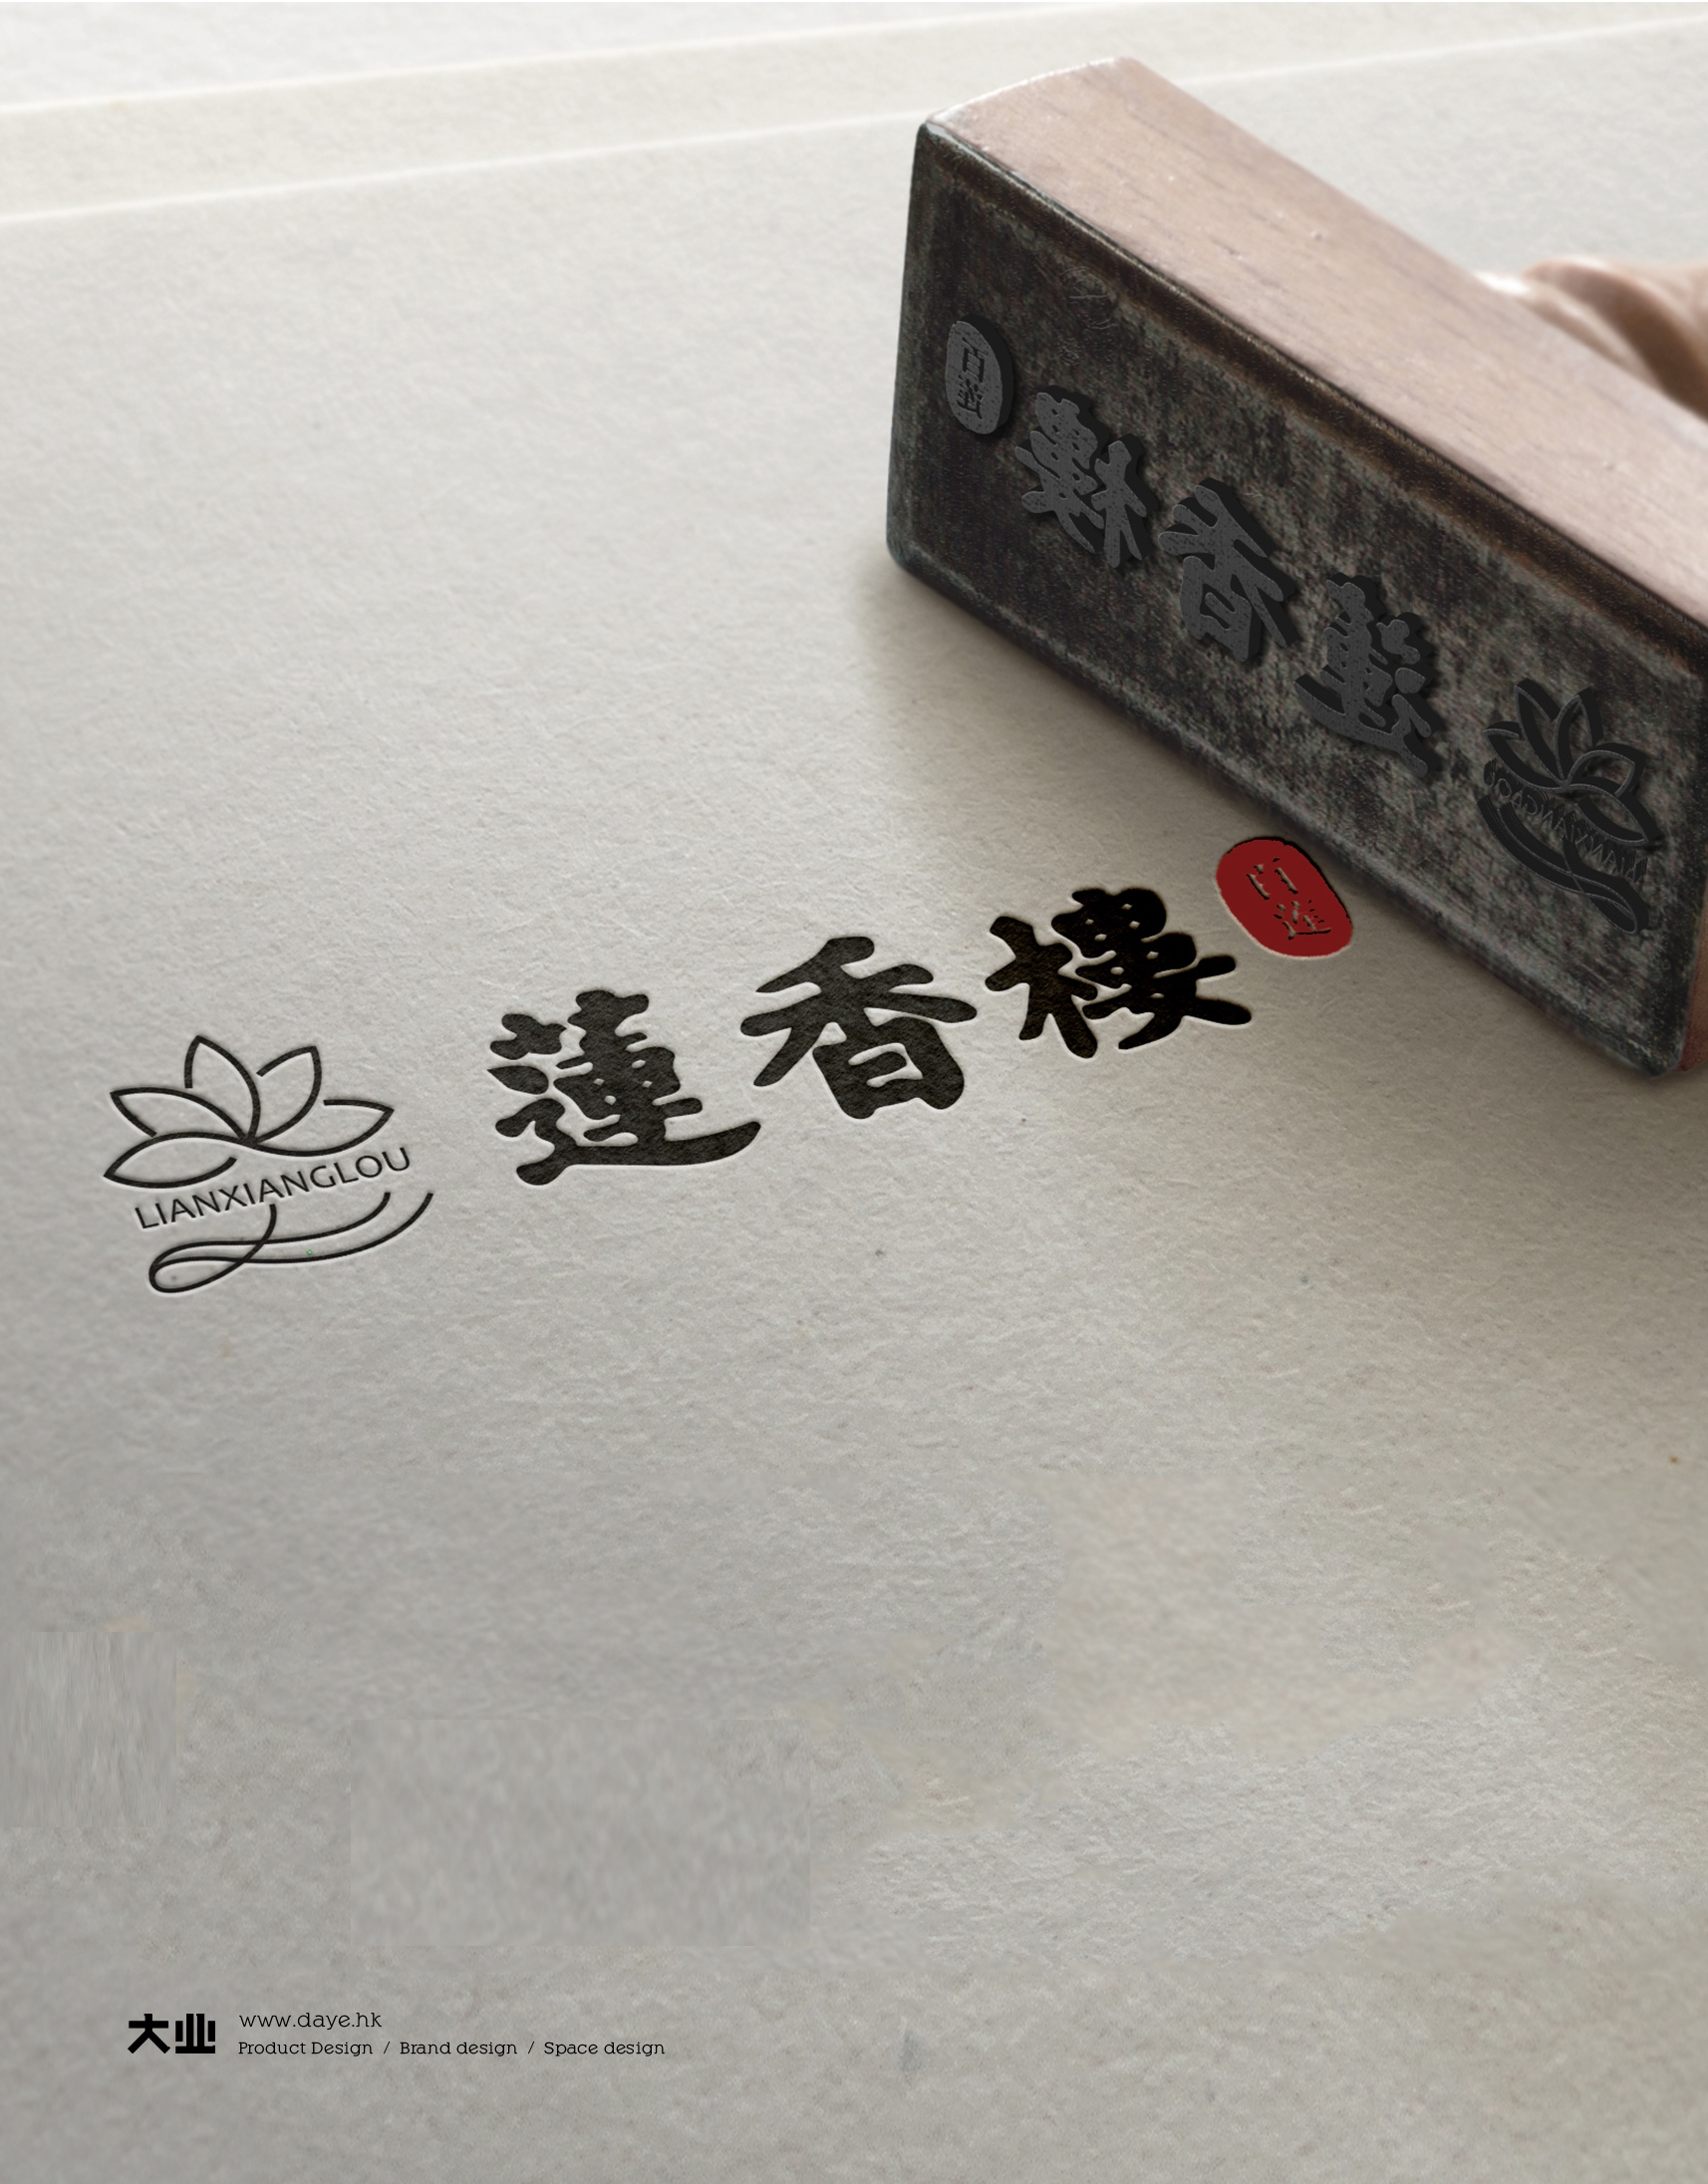 蓮香樓
LIANXIANGLOU
大业
www.daye.hk
Product Design / Brand design / Space design